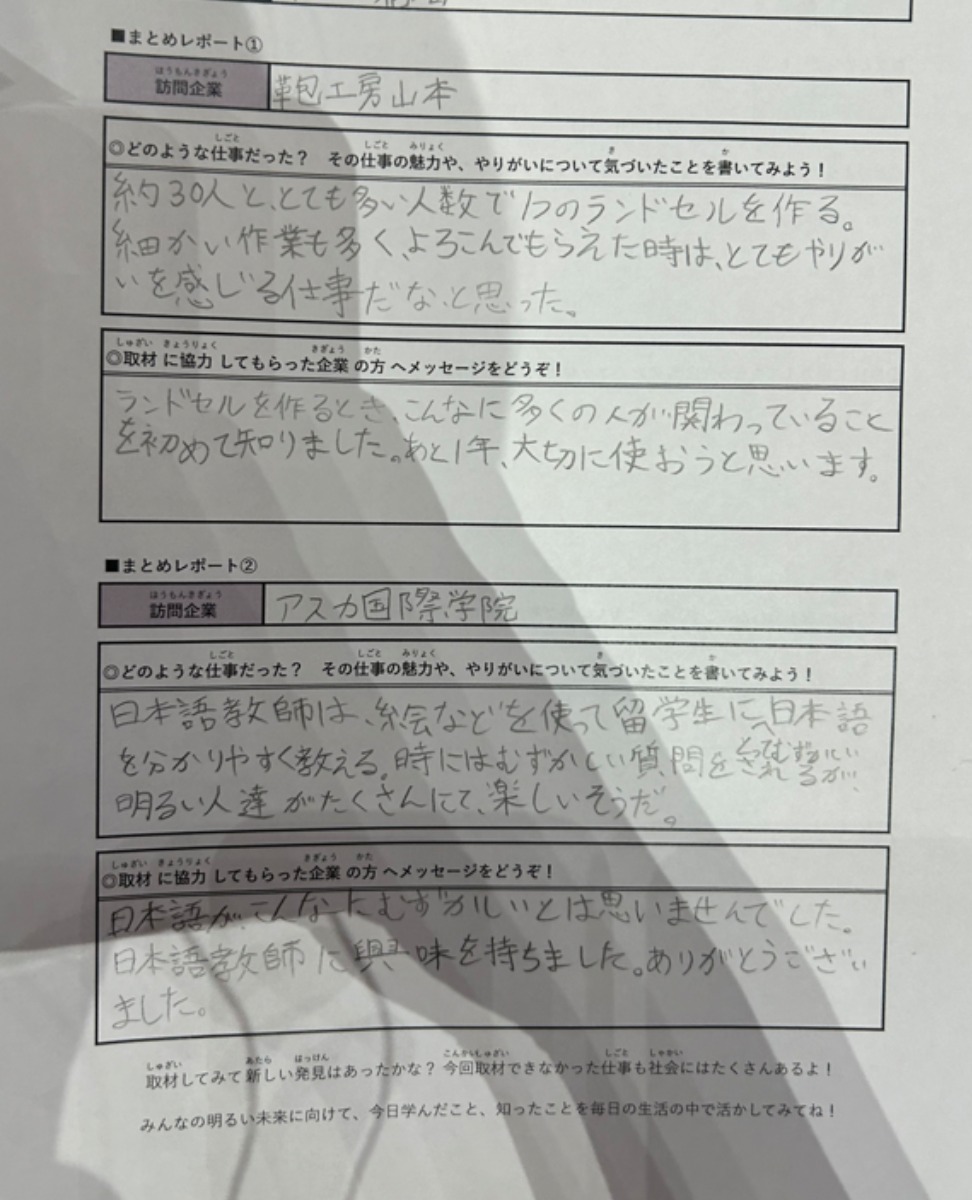 ■まとめレポート①
ほうもんきぎょう
訪問企業 鞄工房山本
しごと しごと みりょく き か
◎どのような仕事だった? その仕事の魅力や、やりがいについて気づいたことを書いてみよう!
約30人と、とても多い人数で1つのランドセルを作る。
細かい作業も多く、よろこんでもらえた時は、とてもやりが
いを感じる仕事だなと思った。
しゅざい きょうりょく きぎょう かた
◎取材に協力してもらった企業の方へメッセージをどうぞ!
ランドセルを作るとき、こんなに多くの人が関わっていること
を初めて知りました。あと1年、大切に使おうと思います。
■まとめレポート②
ほうもんきぎょう
訪問企業 アスカ国際学院
しごと しごと みりょく き か
◎どのような仕事だった? その仕事の魅力や、やりがいについて気づいたことを書いてみよう!
日本語教師は、絵などを使って留学生に、日本語
を分かりやすく教える。時にはむずかしい質問をされるが、
明るい人達がたくさんにて、楽しいそうだ。
しゅざい きょうりょく きぎょう かた
◎取材に協力してもらった企業の方へメッセージをどうぞ!
日本語が、こんなにむずかしいとは思いませんでした。
日本語教師に興味を持ちました。ありがとうござい
ました。
しゅざい あたら はっけん こんかいしゅざい しごと しゃかい
取材してみて新しい発見はあったかな? 今回取材できなかった仕事も社会にはたくさんあるよ!
みんなの明るい未来に向けて、今日学んだこと、知ったことを毎日の生活の中で活かしてみてね!